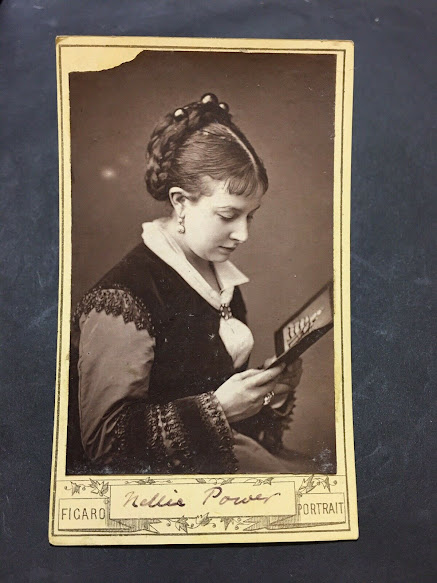 Nellie Power
FIGARO PORTRAIT